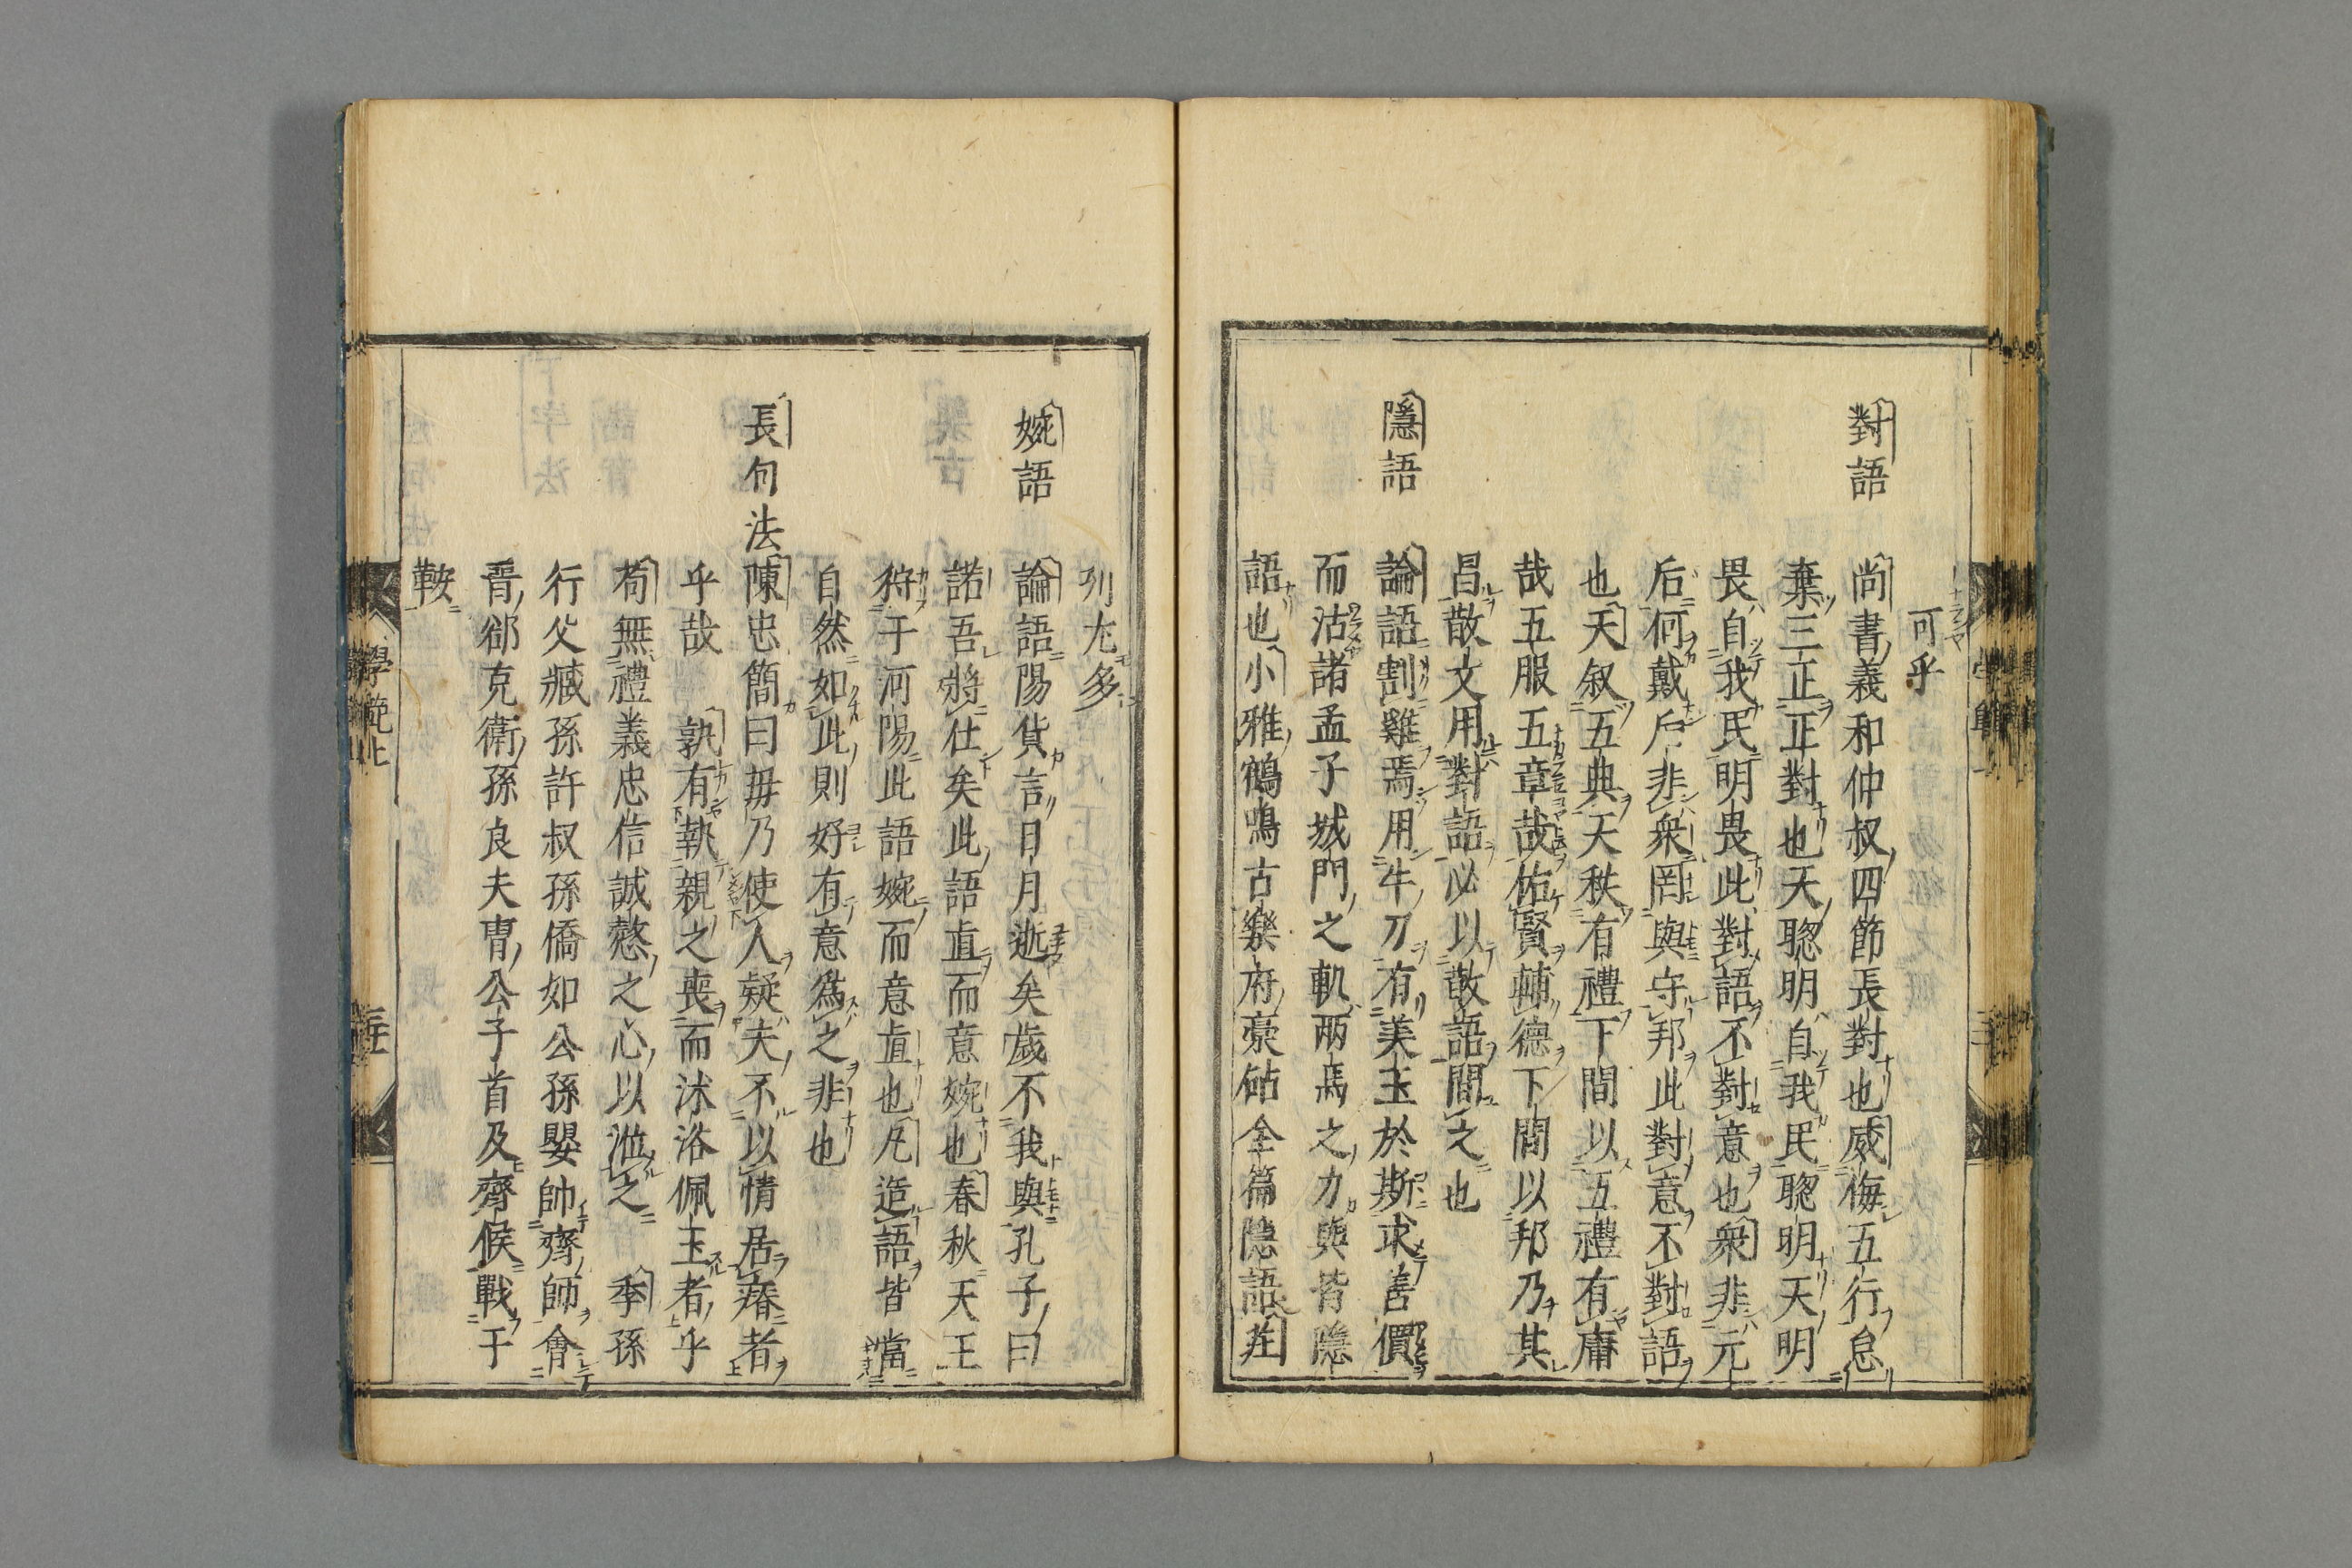 可乎
對語 尚書義和仲叔四節長對也威侮五行怠
棄三正正對也天聦明自我民聦明天明
畏自我民明畏此對語不對意也衆非元
后何戴后非衆罔與守邦此對意不對語
也天叙五典天秩有禮下間以五禮有庸
哉五服五章哉佑賢輔德下間以邦乃其
昌散文用對語必以散語間之也
隱語 論語割雞焉用牛刀有美玉於斯求善價
而沽諸孟子城門之軌兩馬之力與皆隱
語也小雅鶴鳴古樂府藁砧全篇隱語莊
列尢多
婉語 論語陽貨言日月逝矣歲不我與孔子曰
諾吾將仕矣此語直而意婉也春秋天王
狩于河陽此語婉而意直也凡造語皆當
自然如此則好有意爲之非也
長句法 陳忠簡曰毋乃使人疑夫不以情居瘠者
乎哉 孰有執親之喪而沐浴佩玉者乎
苟無禮義忠信誠慤之心以涖之 季孫
行父臧孫許叔孫僑如公孫嬰帥齊師會
晋郤克衛孫良夫曺公子首及齊侯戰于
鞍
學範上